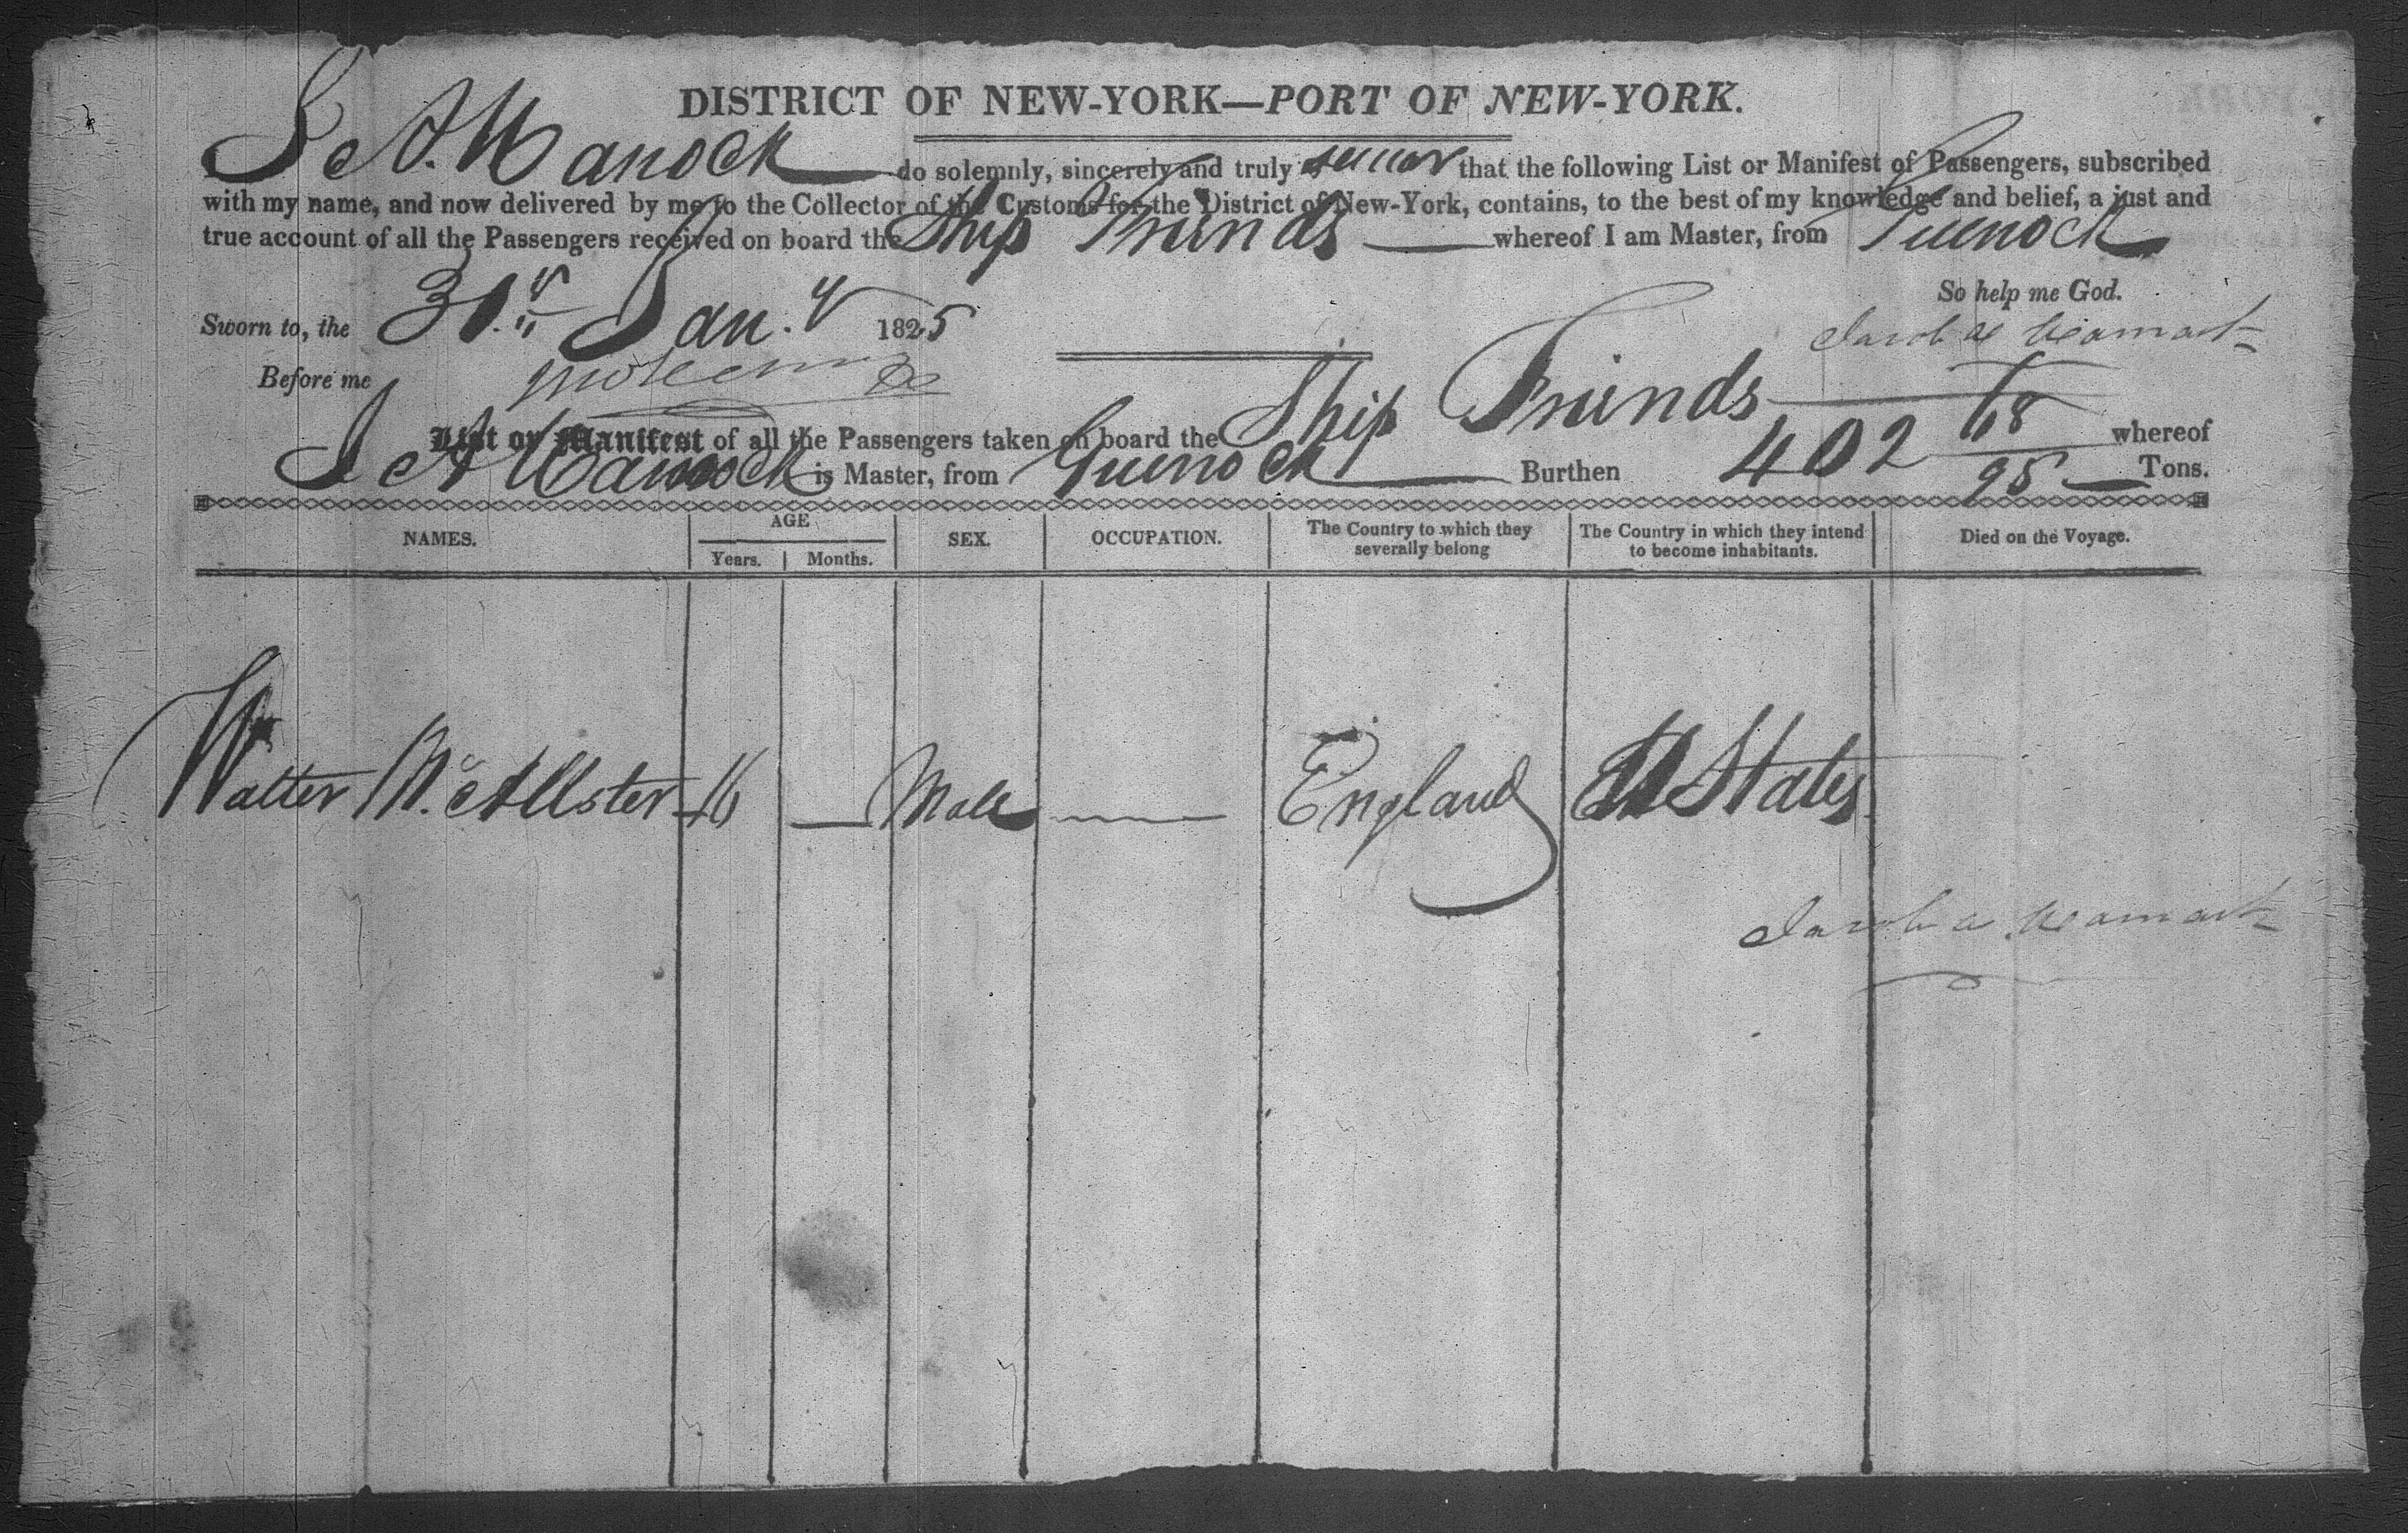 DISTRICT OF NEW-YORK—PORT OF NEW-YORK.
do solemnly, sincerely and truly swear that the following List or Manifest of Passengers, subscribed
with my name, and now delivered by me to the Collector of the Customs for the District of New-York, contains, to the best of my knowledge and belief, a just and
true account of all the Passengers received on board the Ship Friends whereof I am Master, from Greenock
So help me God.
Sworn to, the 31st Jan.y 1825
Before me
List or Manifest of all the Passengers taken on board the Ship Friends whereof
is Master, from Greenock Burthen 402 68/95 Tons.
NAMES. AGE Years. Months. SEX. OCCUPATION. The Country to which they severally belong The Country in which they intend to become inhabitants. Died on the Voyage.
Walter McAllster 16 — Male — England U States